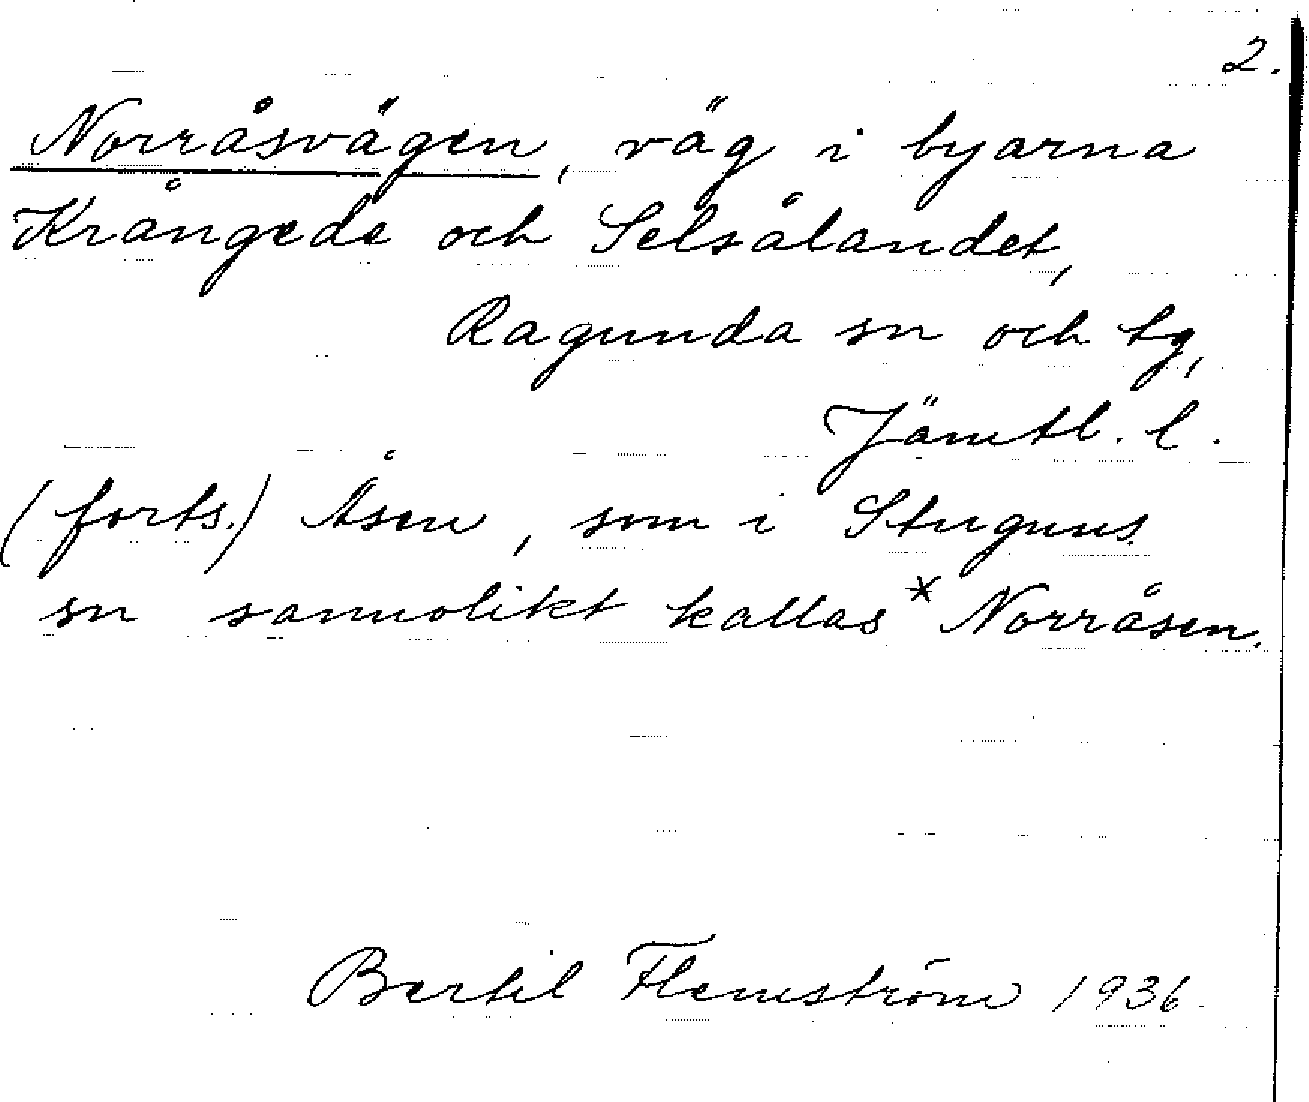 2.
Norråsvägen, väg i byarna
Krångede och Selsålandet,
Ragunda sn och tg,
Jämtl. l.
(forts.) Åsen, som i Stuguns
sn sannolikt kallas * Norråsen.
Bertil Flemström 1936